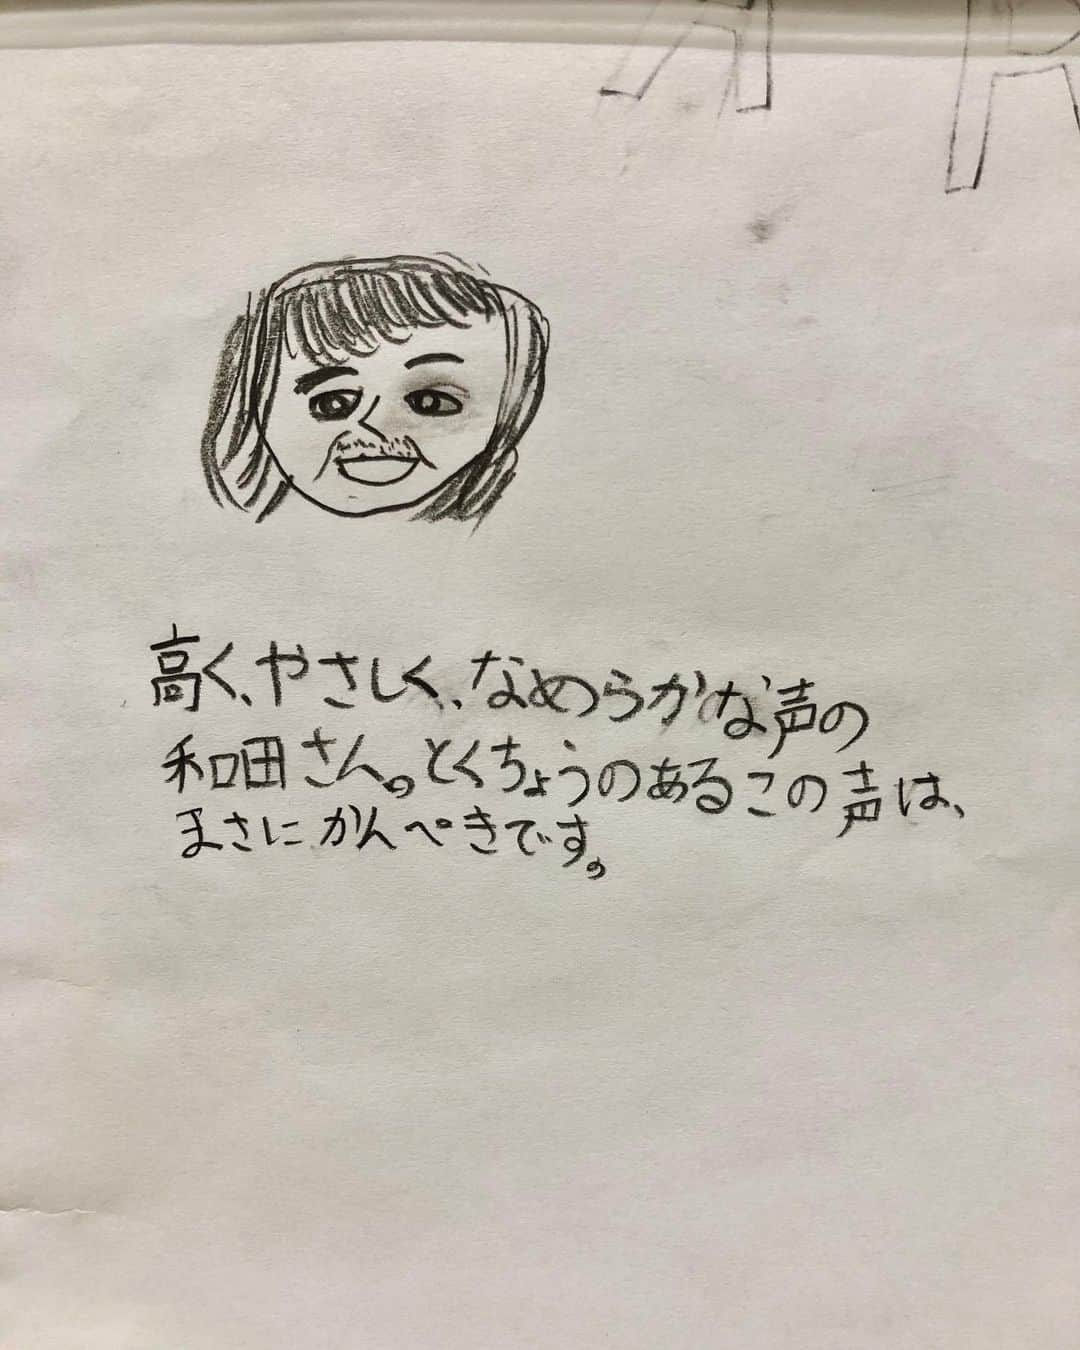 高く、やさしく、なめらかな声の
和田さん。とくちょうのあるこの声は、
まさにかんぺきです。